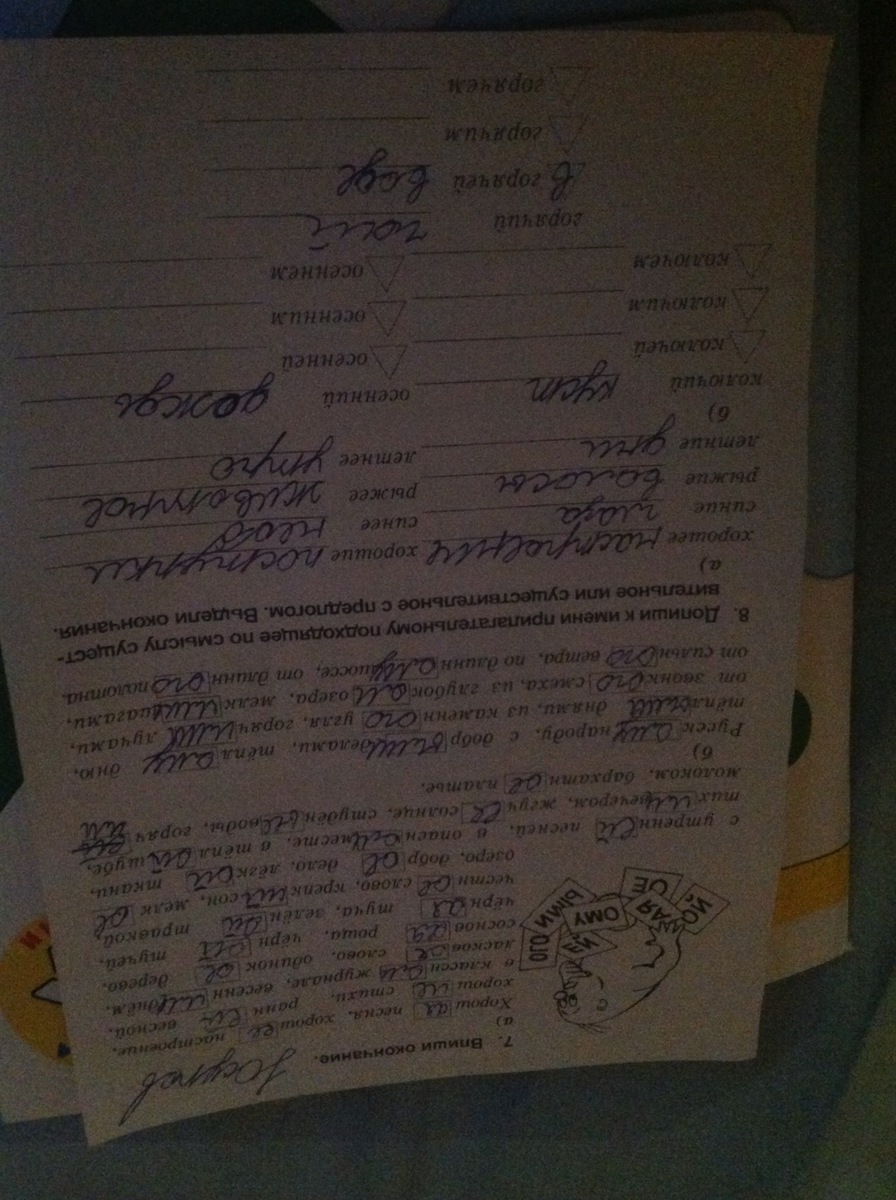 Юсупов
7. Впиши окончание.
а)
Хорошая песня, хорошее настроение,
хорошие стихи, ранней весной,
в классном журнале, весенним днём,
ласковое слово, одинокое дерево,
сосновая роща, чёрной тучей,
чёрная туча, зелёной травкой,
честное слово, крепкий сон, мелкое
озеро, доброе дело, лёгкой ткани,
с утренней песней, в опасном месте, в тёплой шубе,
тихим вечером, жгучее солнце, студёные воды, горячим
молоком, бархатное платье.
ОГО
ЫМИ
ОМУ
АЯ
ОЕ
ОЙ
б)
Русскому народу, с добрыми делами, тёплому дню,
тёплыми днями, из каменного угля, горячими лучами,
от звонкого смеха, из глубокого озера, мелкими шагами,
от сильного ветра, по длинному шоссе, от длинного полотна.
8. Допиши к имени прилагательному подходящее по смыслу сущест-
вительное или существительное с предлогом. Выдели окончания.
а)
хорошее настроение хорошие поступки
синие глаза синее небо
рыжие волосы рыжее животное
летние дни летнее утро
б)
колючий куст осенний дождь
колючей осенней
колючим осенним
колючем осеннем
горячий чай
в горячей воде
горячим
горячем